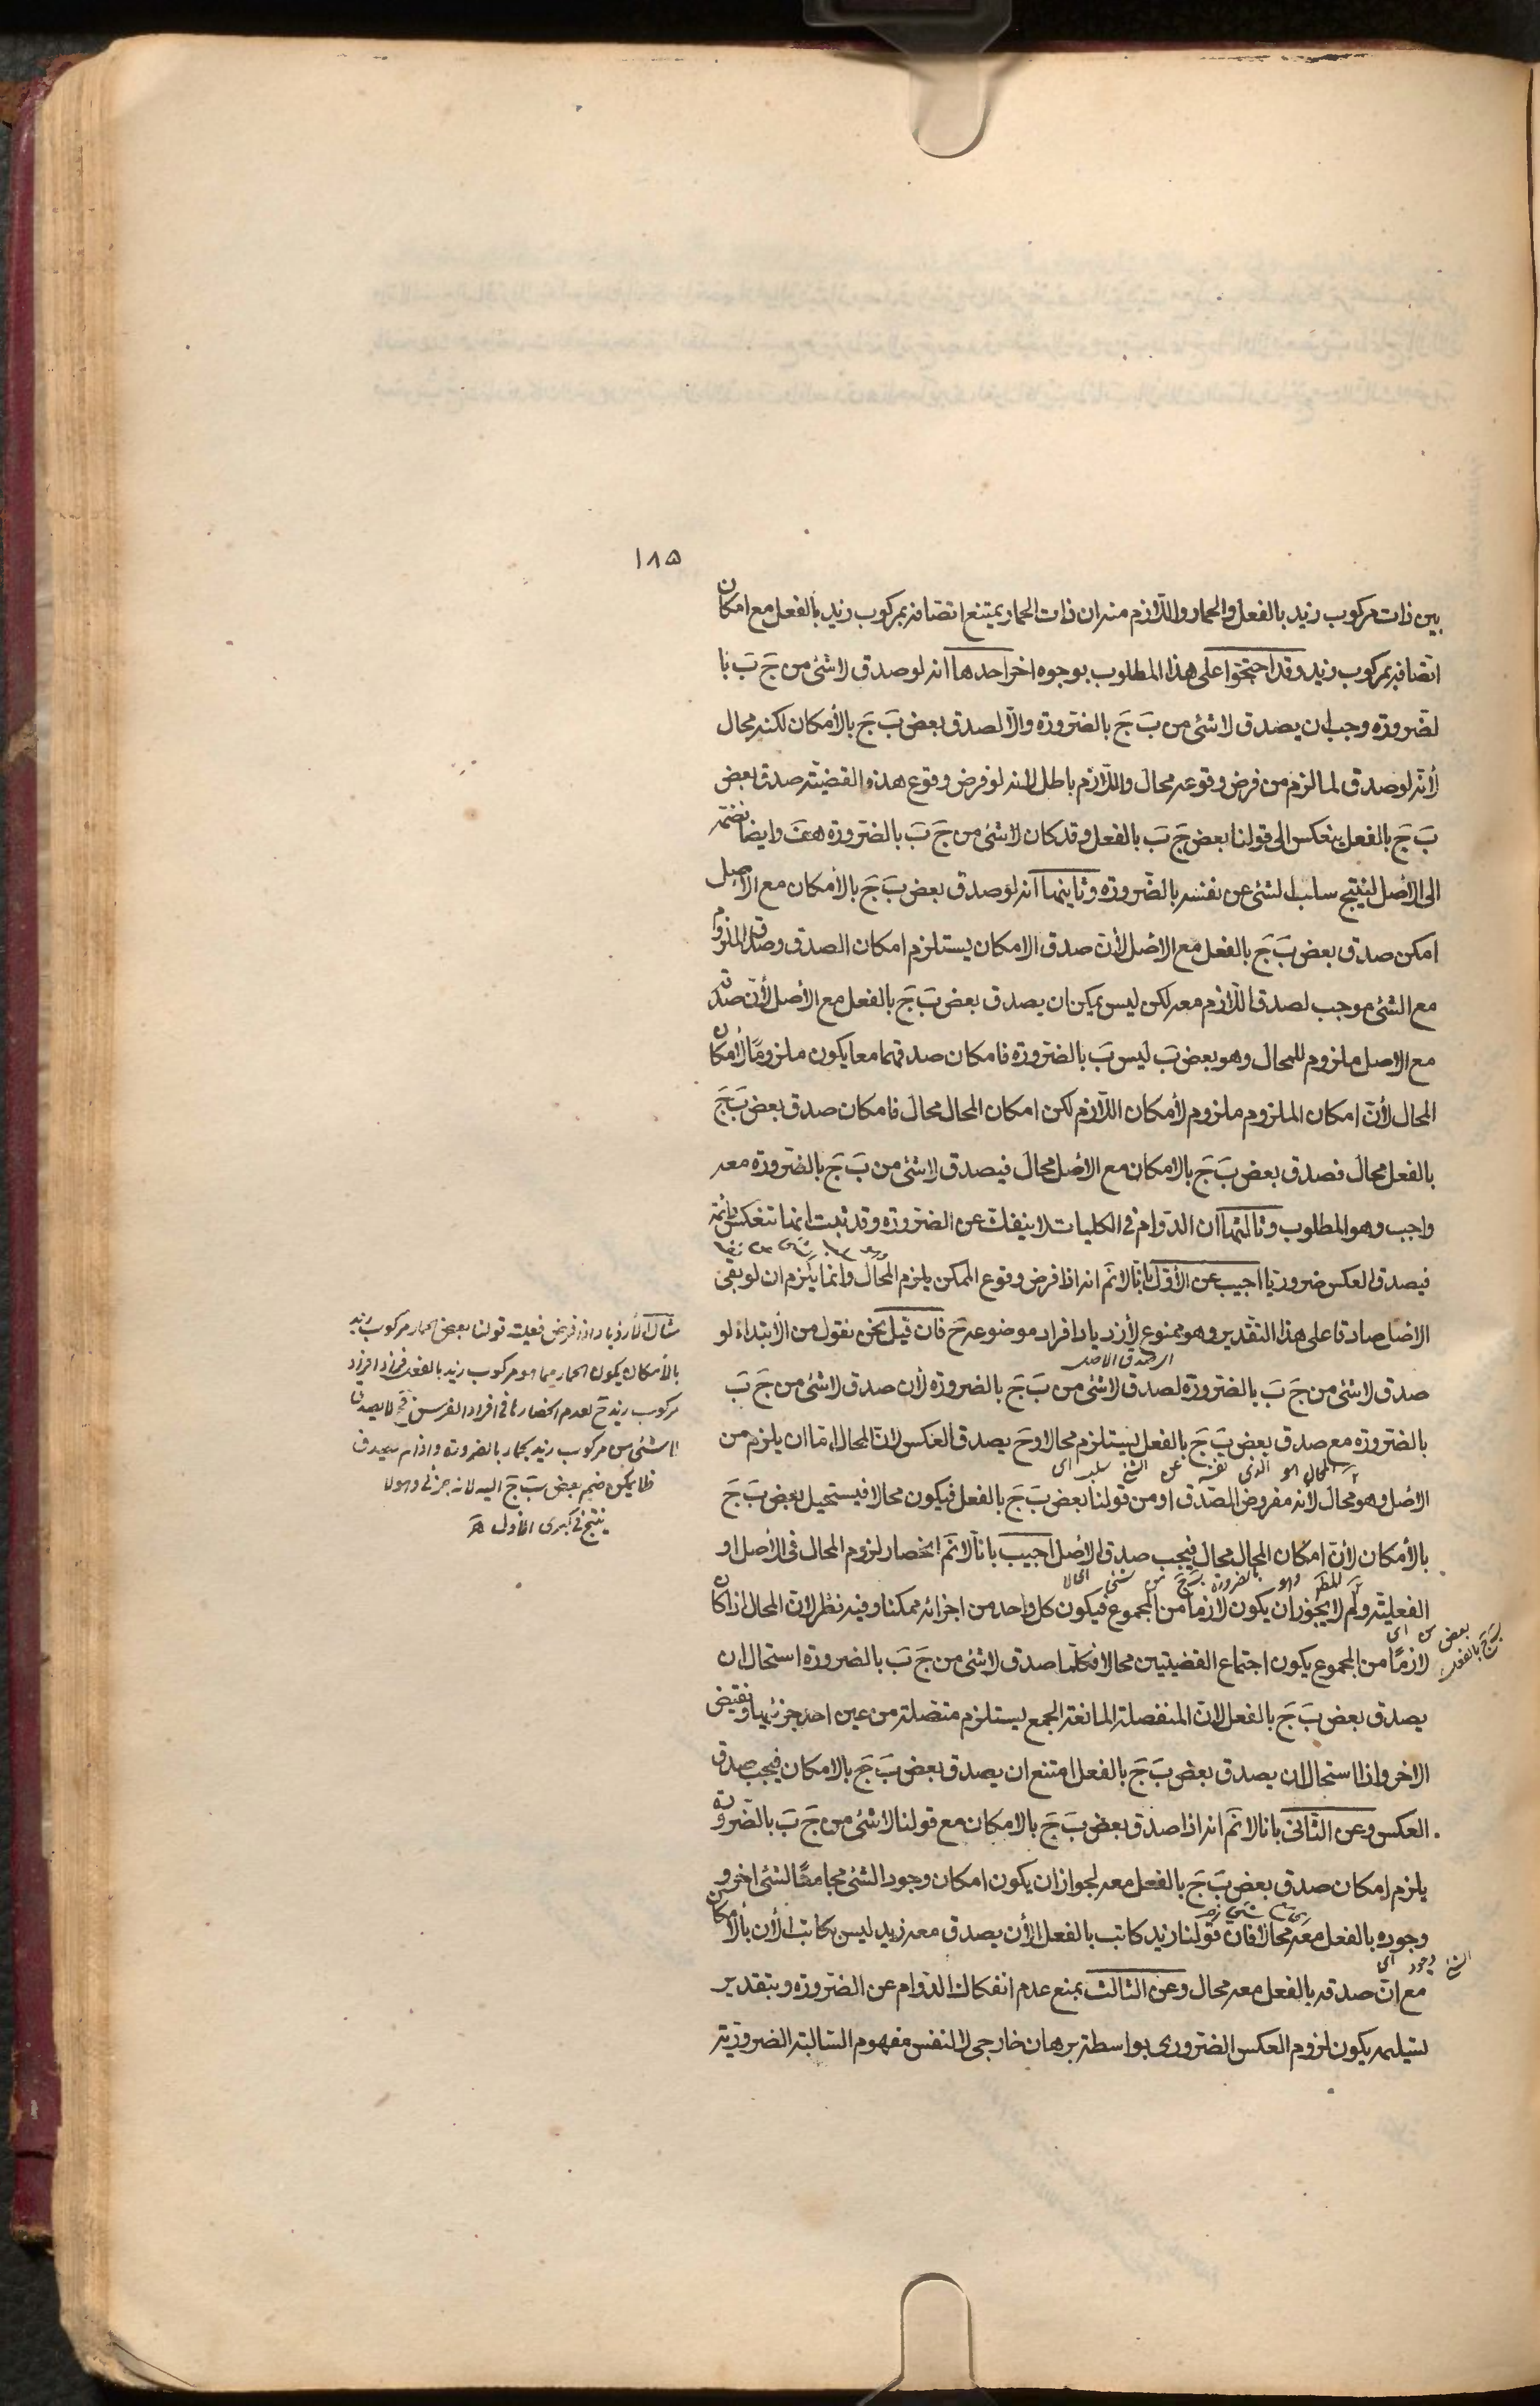 ١٨٥
بين ذات مركوب زيد بالفعل والحمار واللّازم منه ان ذات الحمار يمتنع اتصافه بمركوب زيد بالفعل مع امكان
اتصافه بمركوب زيد وقد احتجّوا على هذا المطلوب بوجوه اخر احدها انه لو صدق لا شئ من جَ بَ با
لضّرورة وجب ان يصدق لا شئ من بَ جَ بالضّرورة والّا لصدق بعض بَ جَ بالأمكان لكنه محال
لأنّه لو صدق لما لزم من فرض وقوعه محال واللّازم باطل لانه لو فرض وقوع هذه القضيّة صدق بعض
بَ جَ بالفعل ينعكس الى قولنا بعض جَ بَ بالفعل وقد كان لا شئ من جَ بَ بالضّرورة هف وايضا نضمّه
الى الاصل لينتج سلب الشئ عن نفسه بالضّرورة وثانيها انه لو صدق بعض بَ جَ بالأمكان مع الأصل
امكن صدق بعض بَ جَ بالفعل مع الاصل لأنّ صدق الامكان يستلزم امكان الصدق وصدق الملزوم
مع الشئ موجب لصدق اللّازم معه لكن ليس يمكن ان يصدق بعض بَ جَ بالفعل مع الأصل لأنّ صدقه
مع الاصل ملزوم للمحال وهو بعض بَ ليس بَ بالضّرورة فامكان صدقهما معا يكون ملزومًا لأمكان
المحال لأنّ امكان الملزوم ملزوم لأمكان اللّازم لكن امكان المحال محال فامكان صدق بعض بَ جَ
بالفعل محال فصدق بعض بَ جَ بالامكان مع الاصل محال فيصدق لا شئ من بَ جَ بالضّرورة معه
واجب وهو المطلوب وثالثها ان الدّوام فى الكليات لا ينفك عن الضّرورة وقد ثبت انها تنعكس دائمة
فيصدق العكس ضروريا اجيب عن الأوّل بانّا لا نم انه اذا فرض وقوع الممكن يلزم المحال وانما يلزم ان لو بقى
الاصل صادقا على هذا التقدير وهو ممنوع لأزدياد افراد موضوعه ح فان قيل نحن نقول من الأبتداء لو
صدق لا شئ من جَ بَ بالضّرورة لصدق لا شئ من بَ جَ بالضرورة لأن صدق لا شئ من جَ بَ
بالضّرورة مع صدق بعض بَ جَ بالفعل يستلزم محالا وح يصدق العكس لانّ المحال امّا ان يلزم من
الأصل وهو محال لأنه مفروض الصّدق او من قولنا بعض بَ جَ بالفعل فيكون محالا فيستحيل بعض بَ جَ
بالأمكان لأنّ امكان المحال محال فيجب صدق الأصل اجيب بانّا لا نم انحصار لزوم المحال فى الأصل او
الفعلية ولم لا يجوز ان يكون لازما من المجموع فيكون كل واحد من اجزائه ممكنا وفيه نظر لانّ المحال اذا كان
لازمًا من المجموع يكون اجتماع القضيتين محالا فكلّما صدق لا شئ من جَ بَ بالضرورة استحال ان
يصدق بعض بَ جَ بالفعل لانّ المنفصلة المانعة الجمع يستلزم متصلة من عين احد جزئيها ونقيض
الاخر واذا استحال ان يصدق بعض بَ جَ بالفعل امتنع ان يصدق بعض بَ جَ بالامكان فيجب صدق
العكس وعن الثّانى بانا لا نم انه اذا صدق بعض بَ جَ بالامكان مع قولنا لا شئ من جَ بَ بالضّرورة
يلزم امكان صدق بعض بَ جَ بالفعل معه لجواز ان يكون امكان وجود الشئ مجامعًا لشئ اخر و
وجوده بالفعل معه محالا فان قولنا زيد كاتب بالفعل لأن يصدق معه زيد ليس بكاتب لأن بالأمكان
مع انّ صدقه بالفعل معه محال وعن الثالث بمنع عدم انفكاك الدّوام عن الضّرورة وبتقدير
تسليمه يكون لزوم العكس الضّرورى بواسطة برهان خارجى لا لنفس مفهوم السّالبة الضروريّة
مثال الأزدياد اذا فرض فعلية قولنا بعض الحمار مركوب زيد
بالأمكان يكون الحمار مما هو مركوب زيد بالفعل فزاد افراد
مركوب زيد ح لعدم انحصارها فى افراد الفرس فح لا يصدق
لا شئ من مركوب زيد بحمار بالضرورة واذا لم يصدق
فلا يمكن ضم بعض بَ جَ اليه لانه جزئى وهو لا
ينتج فى كبرى الأول